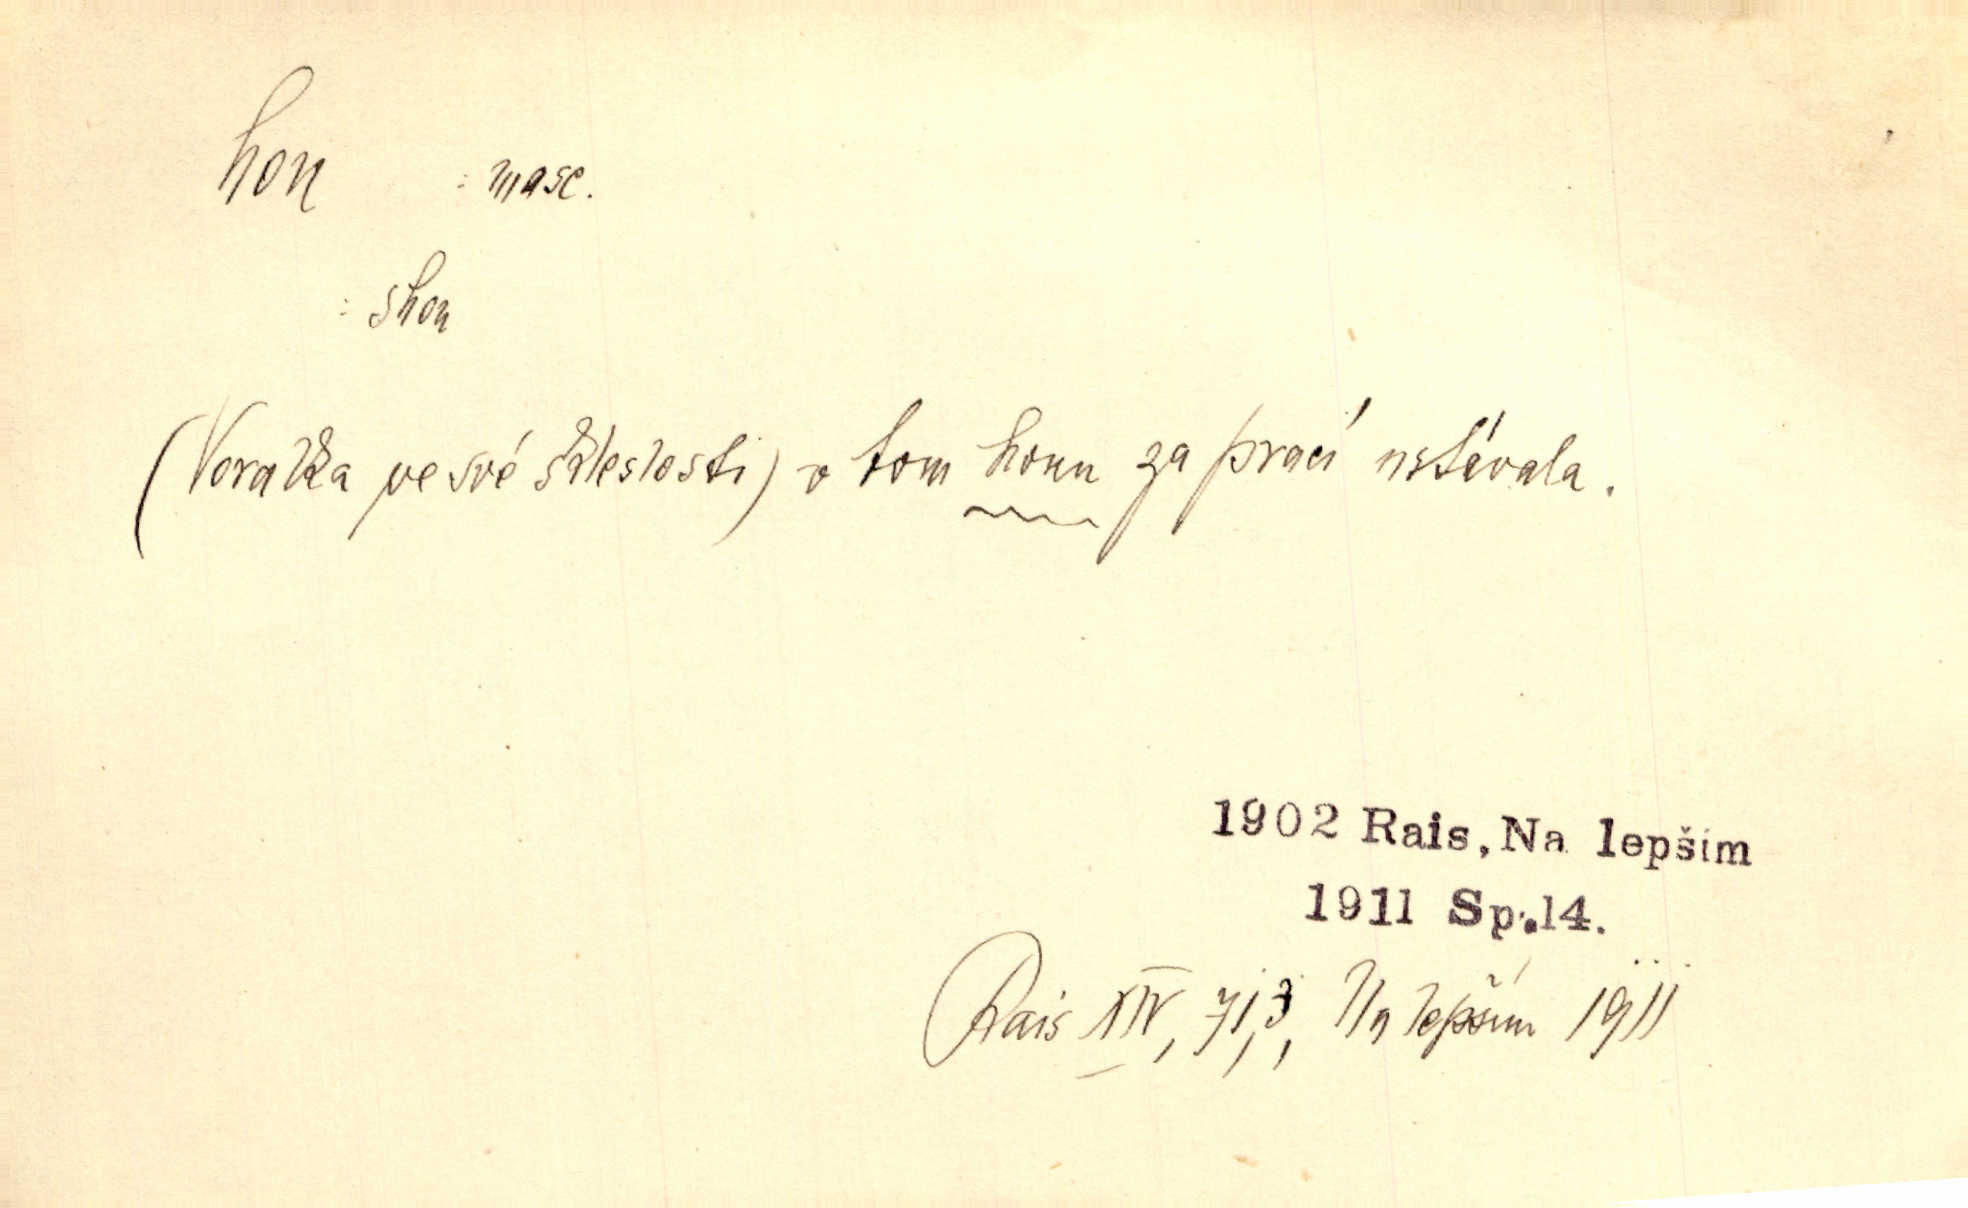 hon : masc.
: shon
(Voralka ve své škleslosti) v tom honu za prací ustávala.
1902 Rais, Na lepším
1911 Sp. 14.
Rais XIV, 71,3, Na lepším 1911